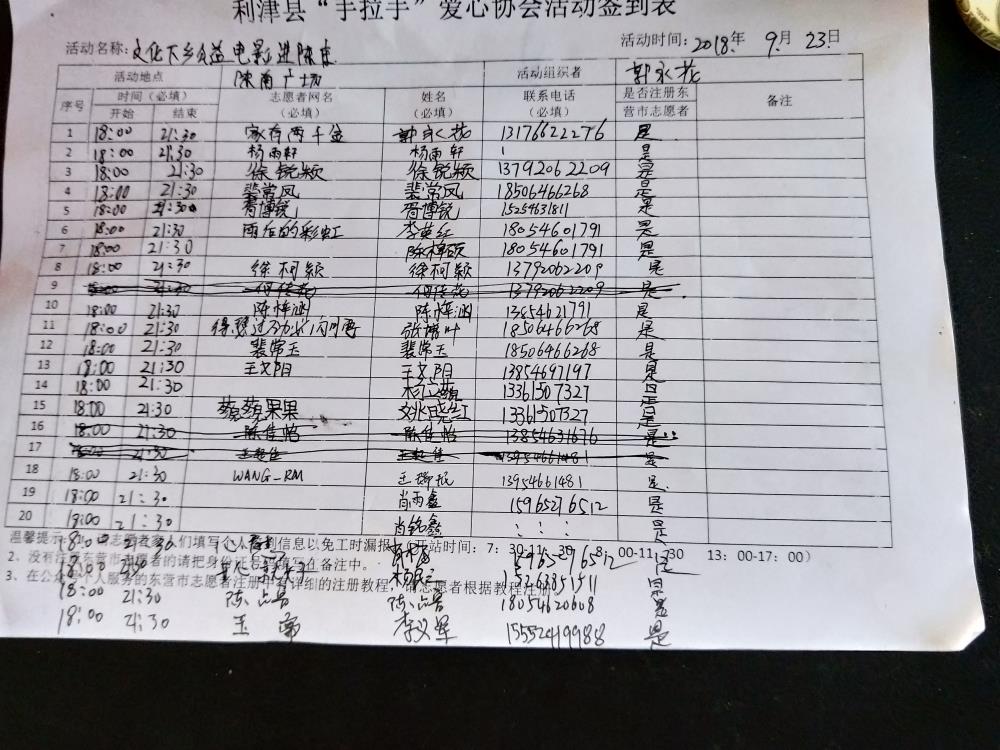 利津县“手拉手”爱心协会活动签到表
活动名称：文化下乡公益电影进陈庄 活动时间：2018年 9月 23日
活动地点 陈南广场 活动组织者 郭永花
序号 时间（必填） 志愿者网名（必填） 姓名（必填） 联系电话（必填） 是否注册东营市志愿者 备注
开始 结束
1 18:00 21:30 家有两千金 郭永花 13176622276 是
2 18:00 21:30 杨雨轩 杨雨轩 是
3 18:00 21:30 徐锐颖 徐锐颖 13792062209 是
4 18:00 21:30 裴常凤 裴常凤 18506466268 是
5 18:00 21:30 胥博锐 胥博锐 15254631811 是
6 18:00 21:30 雨后的彩虹 李英红 18054601791 是
7 18:00 21:30 陈梓硕 18054601791 是
8 18:00 21:30 徐珂颖 徐珂颖 13792062209 是
9 18:00 21:30 13792062209 是
10 18:00 21:30 陈梓涵 陈梓涵 13854621791 是
11 18:00 21:30 18506466268 是
12 18:00 21:30 裴常玉 裴常玉 18506466268 是
13 18:00 21:30 王艾阳 王艾阳 13854697197 是
14 18:00 21:30 13361507327 是
15 18:00 21:30 蔬蔬果果 姚晓红 13361507327 是
16 18:00 21:30 陈佳怡 陈佳怡 13854631676 是
17 18:00 21:30 13954661481 是
18 18:00 21:30 WANG_RM 13954661481 是
19 18:00 21:30 肖雨鑫 15965276512 是
20 19:00 21:30 肖铭鑫 是
温馨提示：1、志愿者 们填写个人 信息以免工时漏报（开站时间：7：30-11：30 00-11：30 13：00-17：00）
18:00 21:30 15965276512 是
2、没有注册东营市志愿者的请把身份证号填写在备注中。
18:00 21:30 15263851511 是
3、在公众 个人服务的东营市志愿者注册中有详细的注册教程，请志愿者根据教程注册
18:00 21:30 18054620608 是
18:00 21:30 李义军 15552419988 是